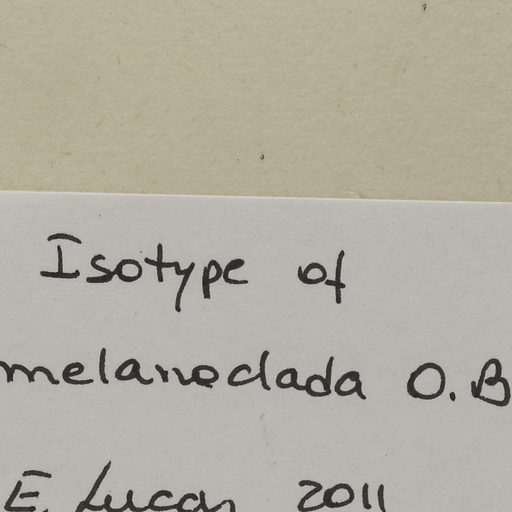 Isotype of
melanoclada O.B
E. Lucas 2011